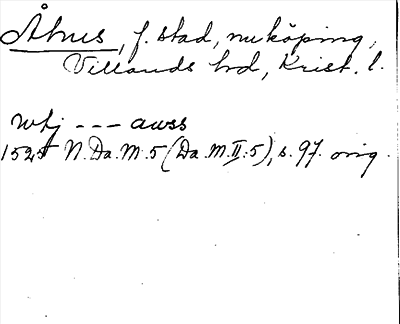 Åhus, f. stad, nuköping,
Villands hd, Krist. l.
utj --- awss
1525 N.Da.M.5 (Da.M.II:5), s. 97. orig.